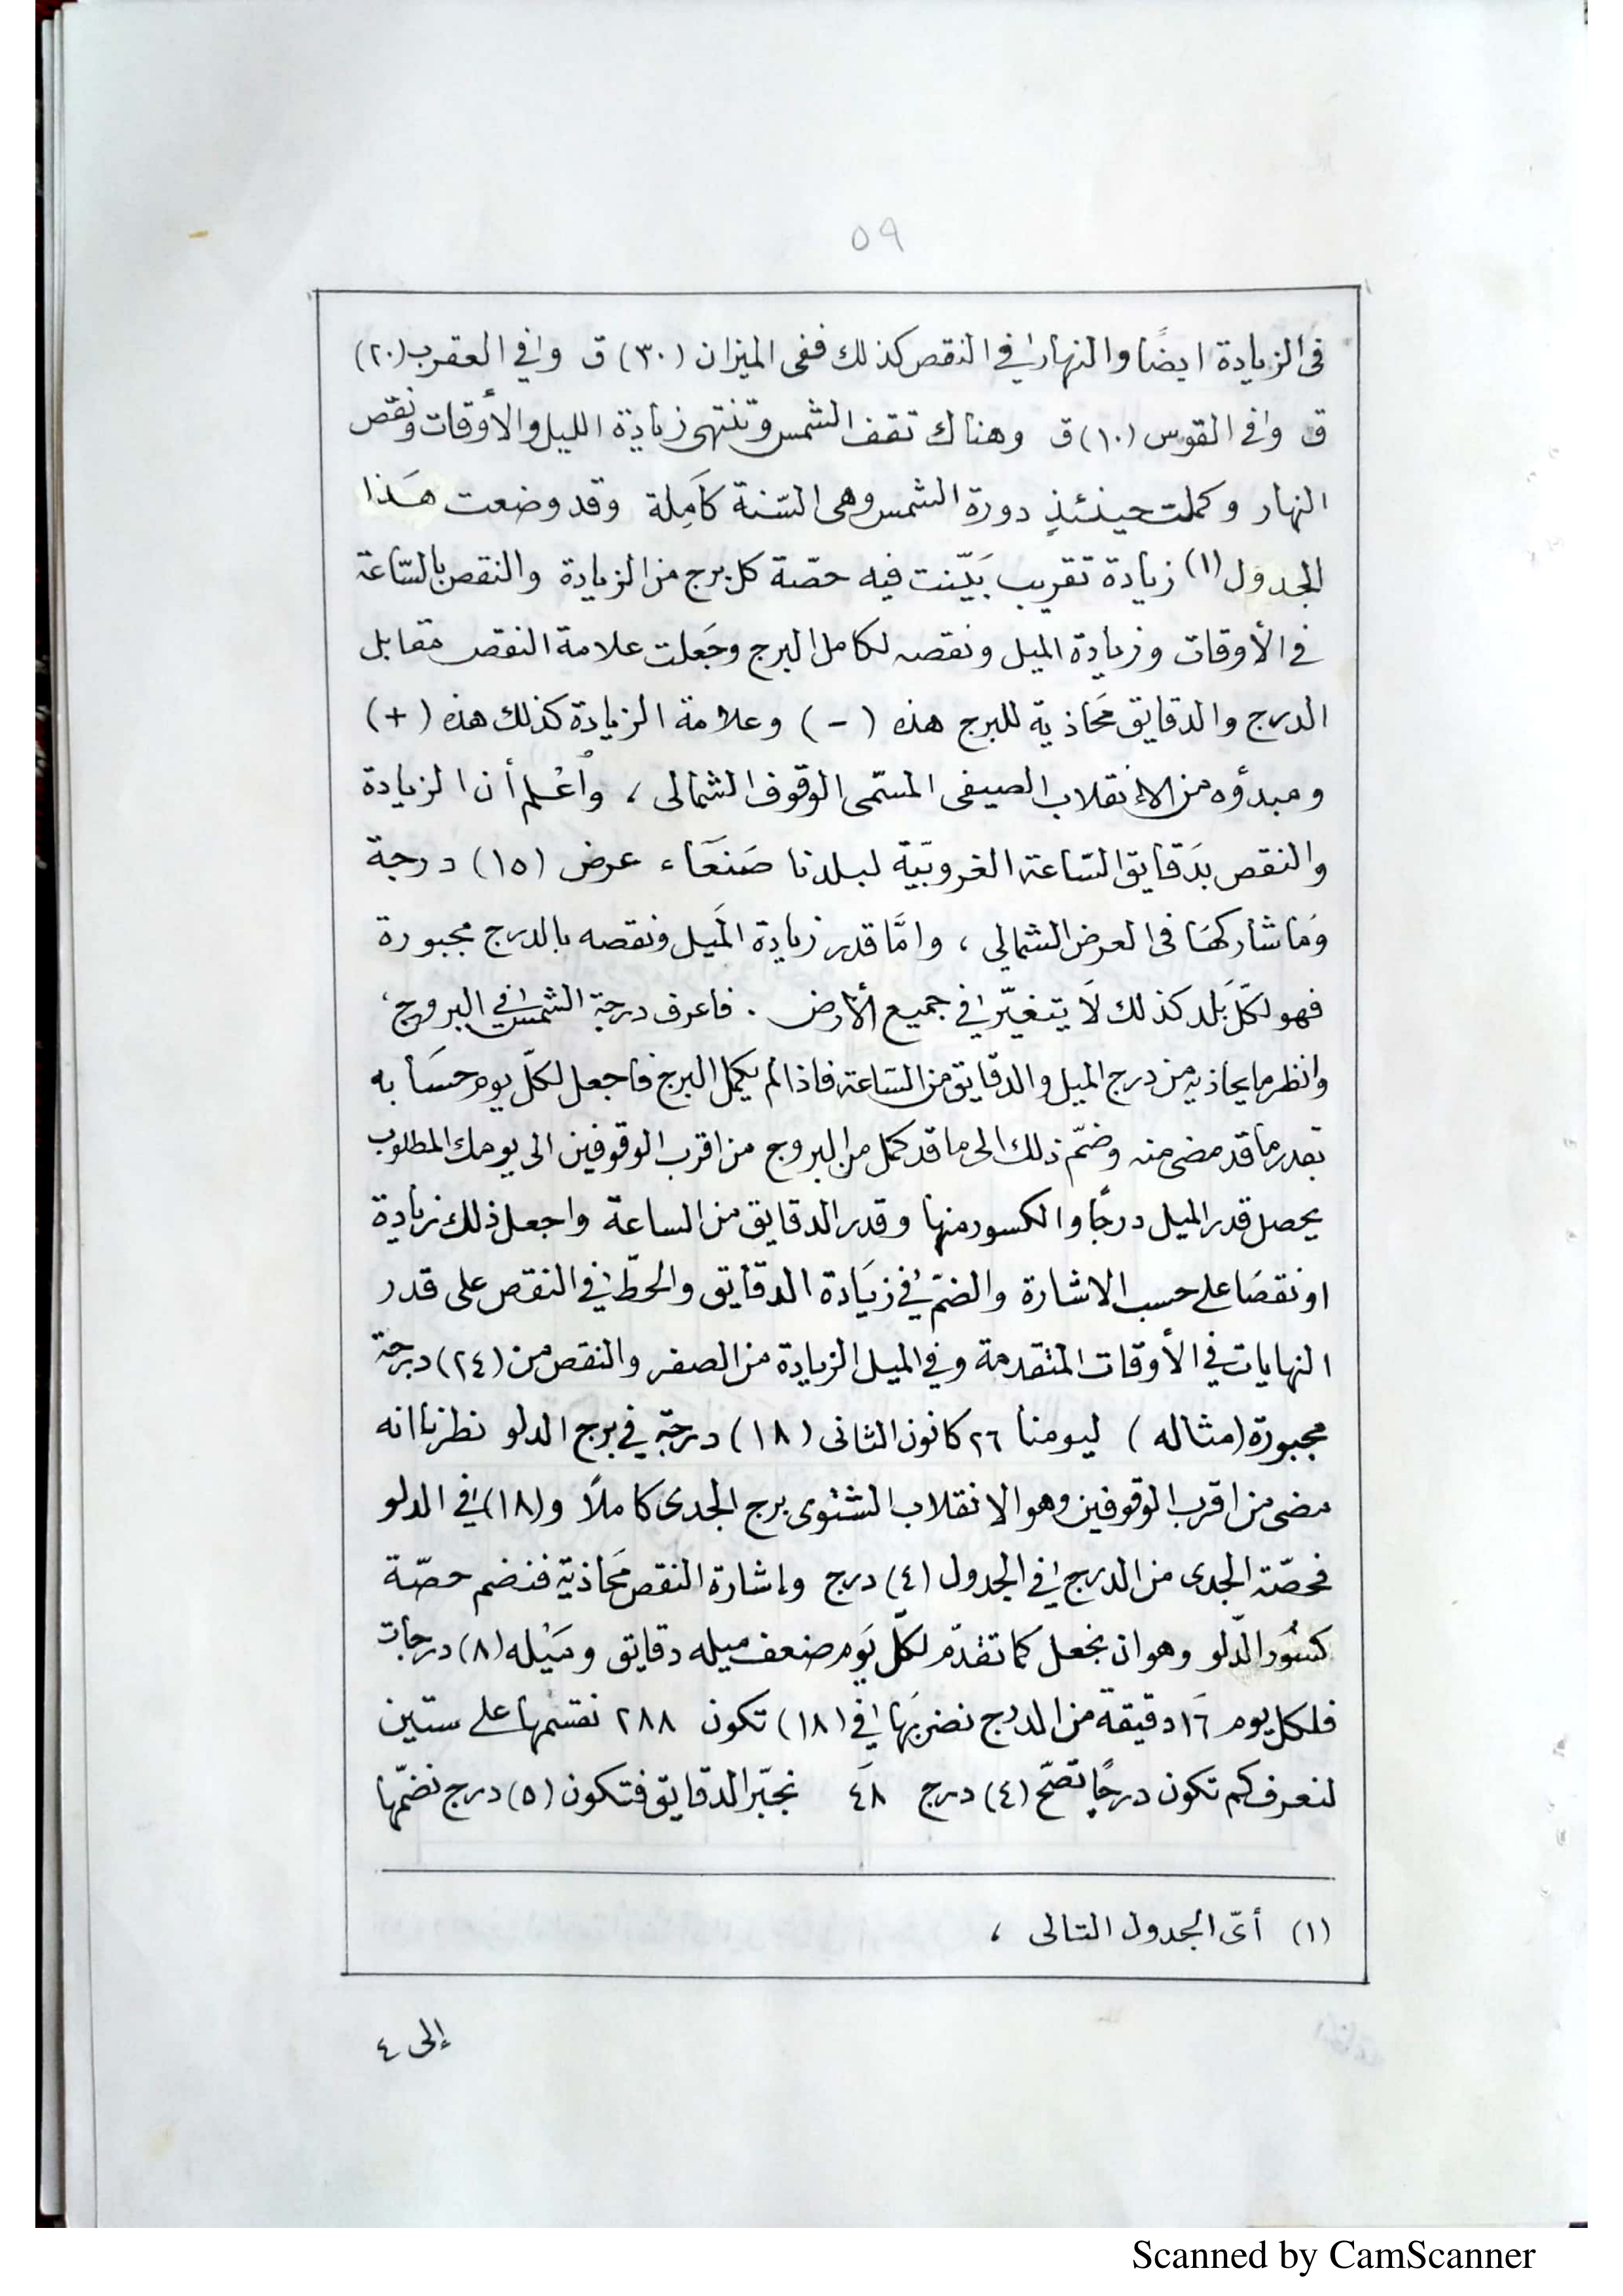 ٥٩
فى الزيادة ايضًا والنهار في النقص كذلك ففى الميزان (٣٠) ق وفي العقرب (٢٠)
ق وفى القوس (١٠) ق وهناك تقف الشمس وتنتهى زيادة الليل والأوقات ونقص
النهار وكملت حينئذٍ دورة الشمس وهى السّنة كَامِلة وقد وضعت هَذا
الجدول (١) زيادة تقريب بَيّنت فيه حصّة كل برج من الزيادة والنقص بالسّاعة
في الأوقات وزيادة الميل ونقصه لكامل البرج وجَعلت علامة النقص مقابل
الدرج والدقايق مَحاذية للبرج هذه (-) وعلامة الزيادة كذلك هذه (+)
ومبدؤه من الانقلاب الصيفى المسّمى الوقوف الشمالى ، واُعْلم أن الزيادة
والنقص بدَقايق السّاعة الغروبّية لبلدنا صَنعَاء عرض (١٥) درجة
ومَا شاركهَا فى العرض الشمالي ، وامَّا قدر زيادة المَيل ونقصه بالدرج مجبورة
فهو لكّل بَلد كذلك لَا يتغيّر في جميع الأرض . فاعرف درجة الشمس في البروج ،
وانظر ما يحاذيه من درج الميل والدقايق من السّاعة فاذا لم يكمل البرج فاجعل لكلّ يوم حسَابه
بقدر ما قد مضى منه وضمّ ذلك الى ما قد كمل من البروج من اقرب الوقوفين الى يومك المطلوب
يحصل قدر الميل درجًا والكسور منها وقدر الدقايق من الساعة واجعل ذلك زيادة
او نقصًا على حسب الاشارة والضمّ في زيَادة الدقايق والحطّ في النقص على قدر
النهايات في الأوقات المتقدمة وفي الميل الزيادة من الصفر والنقص من (٢٤) درجة
مجبورة (مثاله) ليومنا ٢٦ كانون الثانى (١٨) درجة في برج الدلو نظرنا انه
مضى من اقرب الوقوفين وهو الانقلاب الشتوى برج الجدى كاملاً و(١٨) في الدلو
فحصّة الجدى من الدرج في الجدول (٤) درج واشارة النقص مَحاذية فنضم حصّة
كسُور الدّلو وهو ان نجعل كما تقدّم لكلّ يَوم ضعف ميله دقايق ومَيْله (٨) درجات
فلكل يوم ١٦ دقيقة من الدرج نضربَها في (١٨) تكون ٢٨٨ نقسمها على ستين
لنعرف كم تكون درجًا تصّح (٤) درج ٤٨ نجبّر الدقايق فتكون (٥) درج نضمّها
(١) أىّ الجدول التالى ،
إلى ٤
Scanned by CamScanner